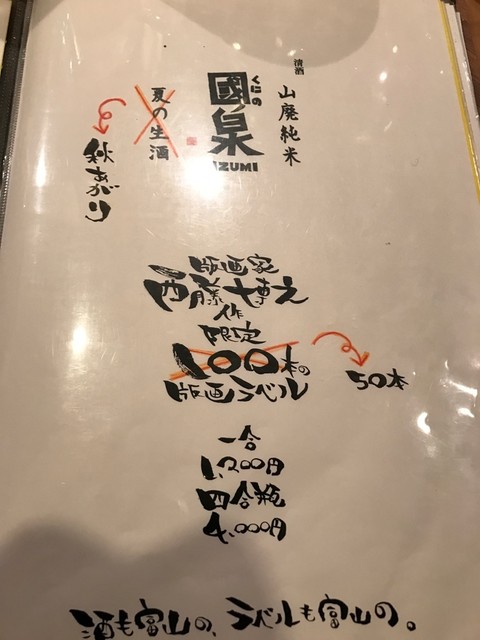 清酒
山廃純米
くにの
國ノ泉
IZUMI
夏の生酒
秋あがり
版画家
西藤博之
作
限定
100本の
版画ラベル
50本
一合
1,200円
四合瓶
4,000円
酒も富山の、ラベルも富山の。